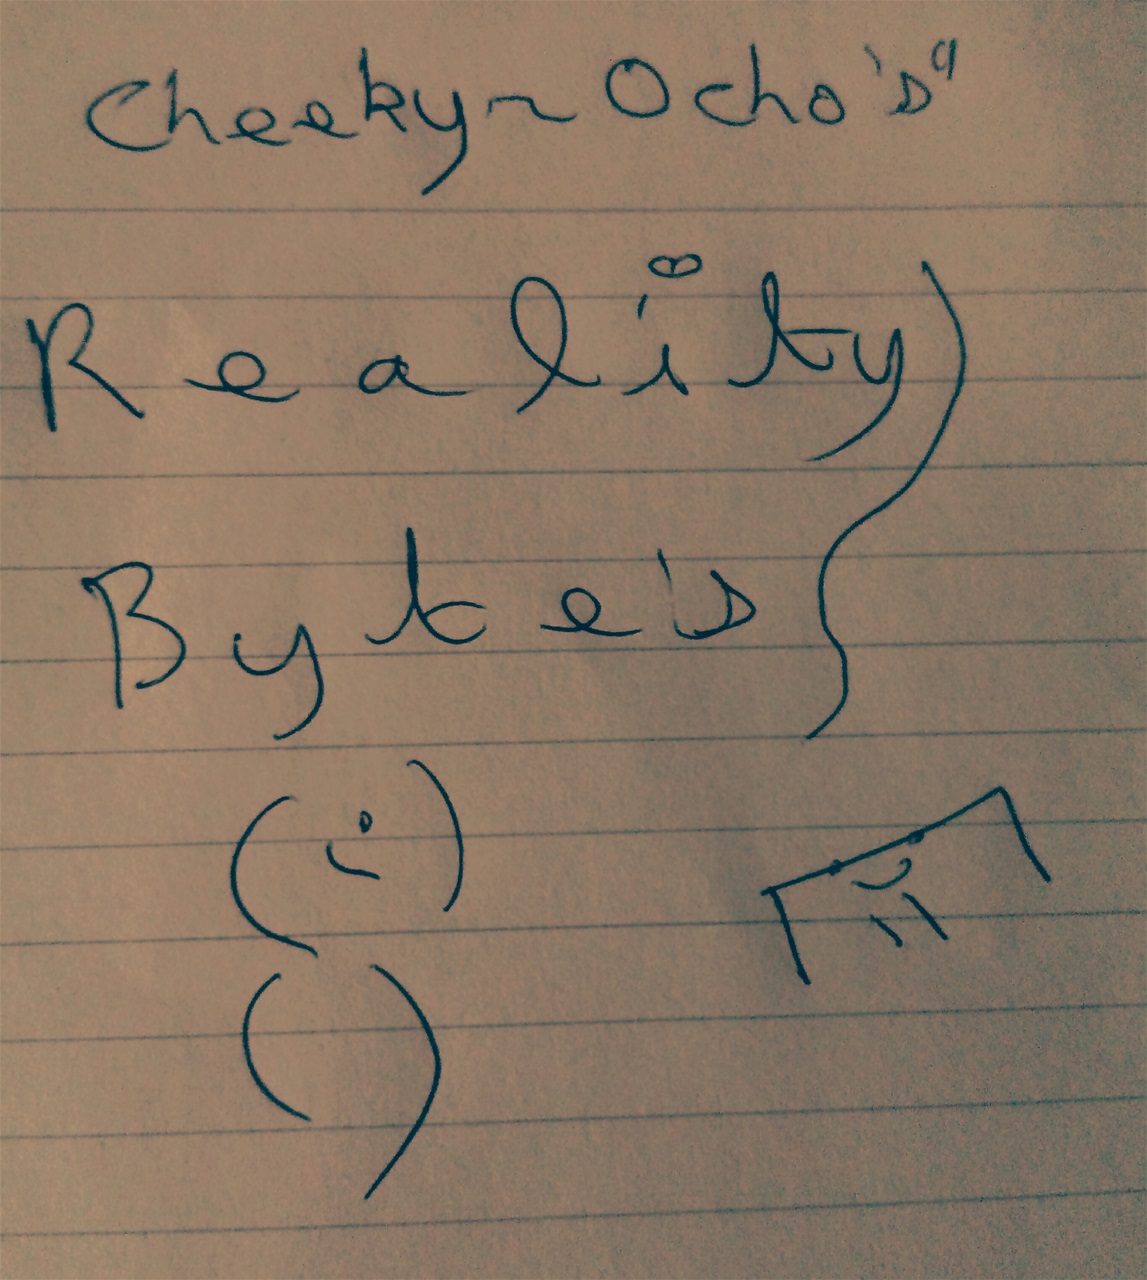 Cheeky~Ocho's"
Reality
Byte's
(i)
( )